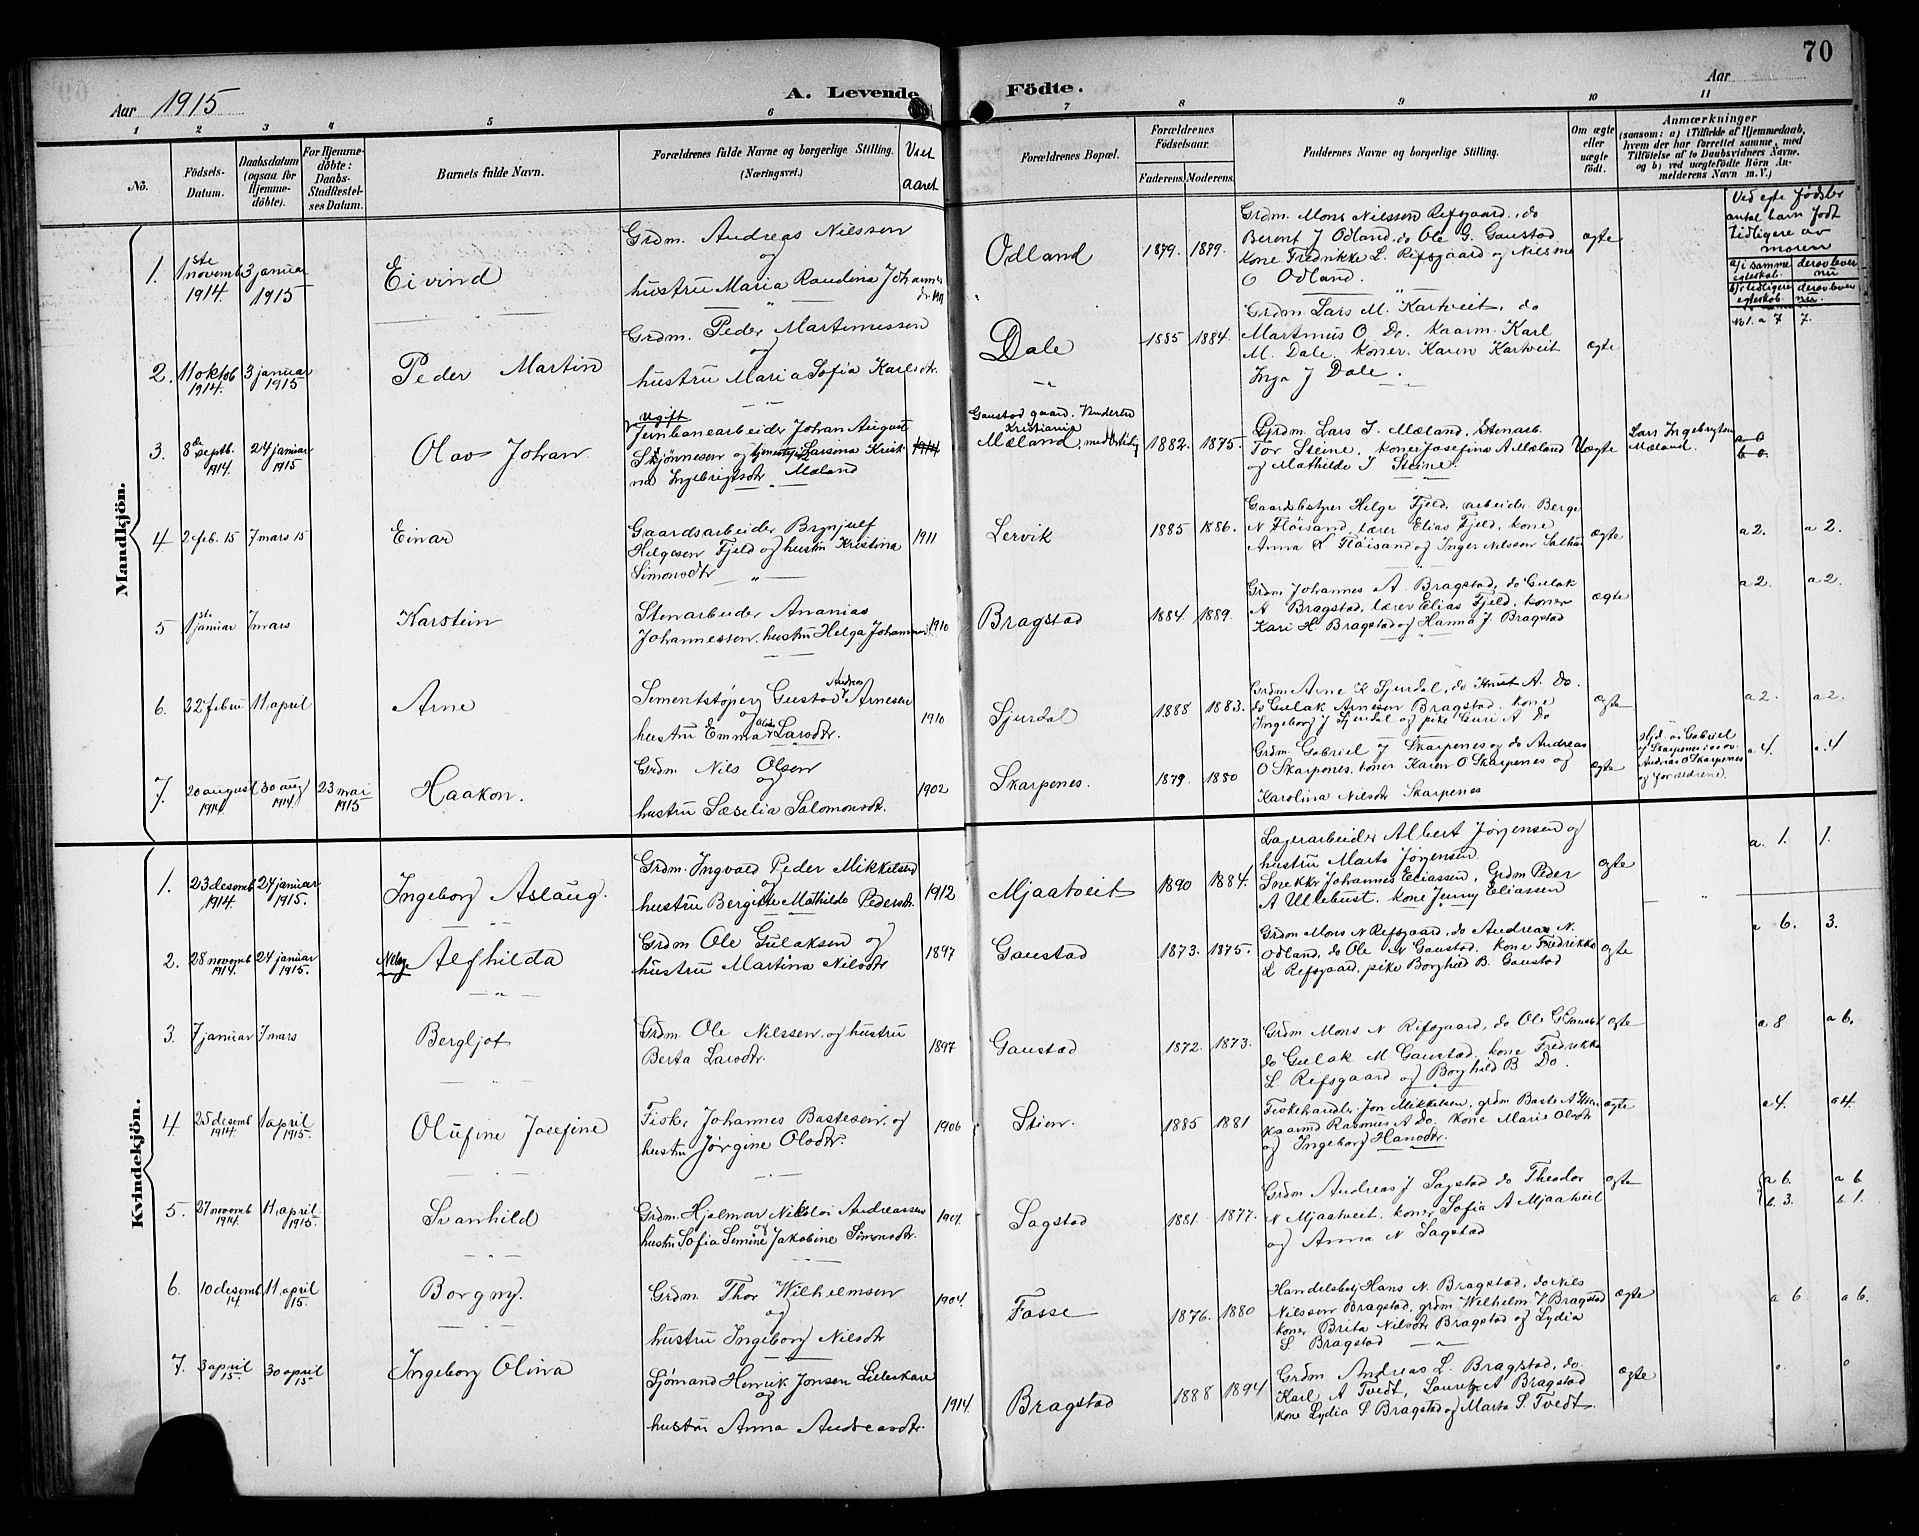 70
Aar 1915
A. Levende
Födte.
Aar
1 2 3 4 5 6 7 8 9 10 11
No.
Födsels-Datum.
Daabsdatum (ogsaa for Hjemmedöbte).
For Hjemmedöbte: Daabs-Stadfestelses Datum.
Barnets fulde Navn.
Forældrenes fulde Navne og borgerlige Stilling.
(Næringsvei.)
Viet aaret
Forældrenes Bopæl.
Forældrenes Födselsaar.
Faderens. Moderens.
Faddernes Navne og borgerlige Stilling.
Om ægte eller uægte födt.
Anmærkninger
(saasom: a) i Tilfælde af Hjemmedaab,
hvem der har forrettet samme, med
Tilföielse af to Daabsvidners Navne,
og b) ved uægtefödte Börn An-
melderens Navn m. V.)
Ved egte fødsler
antal barn født
tidligere av
moren
a/i samme egteskab. derav lever nu
b/i tidligere egteskab. derav lever nu.
Mandkjön.
1. 1ste novemb 1914. 3 januar 1915
Eivind
Grdm. Andreas Nilssen
og
hustru Maria Raudina Johannesdr
Odland
1879. 1879.
Grdm. Mons Nilssen Refsgaard, do
Berent J Odland, do Ole G. Gaustad
kone Fredrikke L Refsgaard og Nilsine
O Odland.
ægte
No 1. a 7 7.
2. 11 oktob 1914. 3 januar 1915
Peder Martin
Grdm. Peder Martinussen
og
hustru Maria Sofia Karlsdtr.
Dale
1885 1884.
Grdm. Lars M. Kartveit, do
Martinus O. Do. kaarm. Karl
M. Dale. koner. Karen Kartveit
Inga J Dale.
ægte
3. 8de septb. 1914. 24 januar 1915
Olav Johan
Ugift
Jernbanearbeider Johan August
Skjønnesen og tjenestepi Larsena Kristi
na Ingebrigtsdtr Mæland
1914
Gaustad gaard. Vinderen
Kristiania
Mæland
1882. 1875.
Grdm. Lars I. Mæland, Stenarb.
Tor Steine, koner Josefina A Mæland
og Mathilde I Steine.
Uægte
Lars Ingebrigtsen
Mæland.
a 0
b 0.
4 2 feb. 15 7 mars 15
Einar
Gaardsarbeider Brynjulf
Helgesen Fjeld og hustru Kristina
Simonsdtr
1911
Lervik
1885 1886.
Gaardsbestyrer Helge Fjeld, arbeider Berge
N Fløisand, lærer Elias Fjeld, kone
Anna L Fløisand og Inger Nilssen
ægte
a 2. a 2.
5 1ste januar 7 mars
Karstein
Stenarbeider Ananias
Johannessen, hustru Helga Johannesdr.
1910
Bragstad
1884. 1889.
Grdm Johannes A. Bragstad, do Gulak
A Bragstad, lærer Elias Fjeld, koner
Kari H. Bragstad og Hanna J. Bragstad
ægte
a 2. a 2.
6. 22 febru 11 april
Arne
Sementstøper Gustav Andreas Arnesen
og
hustru Emma Larsdtr.
1910
Sjurdal
1888 1883.
Grdm Arne K Sjurdal, do Knut A. Do.
do Gulak Arnesen Bragstad. kone
Ingeborg J Sjurdal og pike Guri A Do
ægte
a 2. a 2.
7. 20 august 1914 30 aug 1914 23 mai 1915
Haakon.
Grdm. Nils Olsen
og
hustru Sæselia Salomonsdtr.
1902
Skarpenes.
1879 1880
Grdm. Gabriel J Skarpenes og do Andreas
O Skarpenes, koner Karen O Skarpenes og
Karolina Nilsdtr Skarpenes
ægte
Hjd. av Gabriel
J Skarpenes i ov.
Andreas O Skarpenes
og foreldrene.
a. 4. a. 4
Kvindekjön.
1. 23 desemb 1914. 24 januar 1915.
Ingeborg Aslaug.
Grdm. Ingvald Peder Mikkelsen
og
hustru Bergitte Mathilde Pedersdtr.
1912
Mjaatveit
1890 1884.
Lagerarbeider Albert Jørgensen og
hustru Marta Jørgensen.
Snekkr Johannes Eliassen, Grdm Peder
A Ullebust. kone Jenny Eliassen
ægte
a. 1. 1.
2. 28 novemb 1914. 24 januar 1915.
Alfhilda
Grdm Ole Gulaksen og
hustru Martina Nilsdtr
1897
Gaustad
1873. 1875.
Grdm Mons N Refsgaard, do Andreas N.
Odland, do Ole N Gaustad, kone Fredrikke
L Refsgaard, pike Borghild B. Gaustad
ægte
a 6. 3.
3. 7 januar 7 mars
Bergljot
Grdm. Ole Nilssen og hustru
Berta Larsdtr.
1897
Gaustad
1872. 1873.
Grdm Mons N Refsgaard, do Ole G Gaustad
do Gulak M Gaustad, kone Fredrikke
L Refsgaard og Borghild B Do.
ægte
a 8 a 6.
4. 25 desemb 1914. 1 april 1915.
Olufine Josefine
Fisker Johannes Bastesen og
hustru Jørgine Olsdtr.
1906
Stien.
1885 1881
Fiskehandler Jon Mikkelsen, grdm Baste A Stien
kaarmd Rasmus A Do. kone Marie Olsdtr
og Ingeborg Hansdtr.
ægte
a 4. a 4.
5. 27 novemb 1914. 11 april 1915.
Svanhild
Grdm. Hjalmar Nikolai Andreassen
og
hustru Sofia Simine Jakobine Simonsdtr.
1901
Sagstad
1881. 1877.
Grdm Andreas J Sagstad do Theodor
N Mjaatveit, koner Sofia A Mjaatveit
og Anna N Sagstad
ægte
a 6. a 6
b. 3. b 1.
6. 10 desemb. 14 11 april 15.
Borgny.
Grdm. Thor Wilhelmsen
og
hustru Ingeborg Nilsdtr
1904.
Fosse
1876. 1880
Handelsbetj Hans N. Bragstad, do Nils
Nilssen Bragstad, grdm Wilhelm V Bragstad
koner Brita Nilsdtr Bragstad og Lydia
S Bragstad
ægte
a 6. a 6.
7. 3 april 15. 30 april 15
Ingeborg Oliva
Sjømand Henrik Jonsen Lilleskare
og
hustru Anna Andreasdtr.
1914.
Bragstad
1888 1894
Grdm Andreas L. Bragstad, do.
Karl A Tvedt, Lauretz A Bragstad
kone Lydia S Bragstad og Marta S. Tvedt.
ægte
0. 0